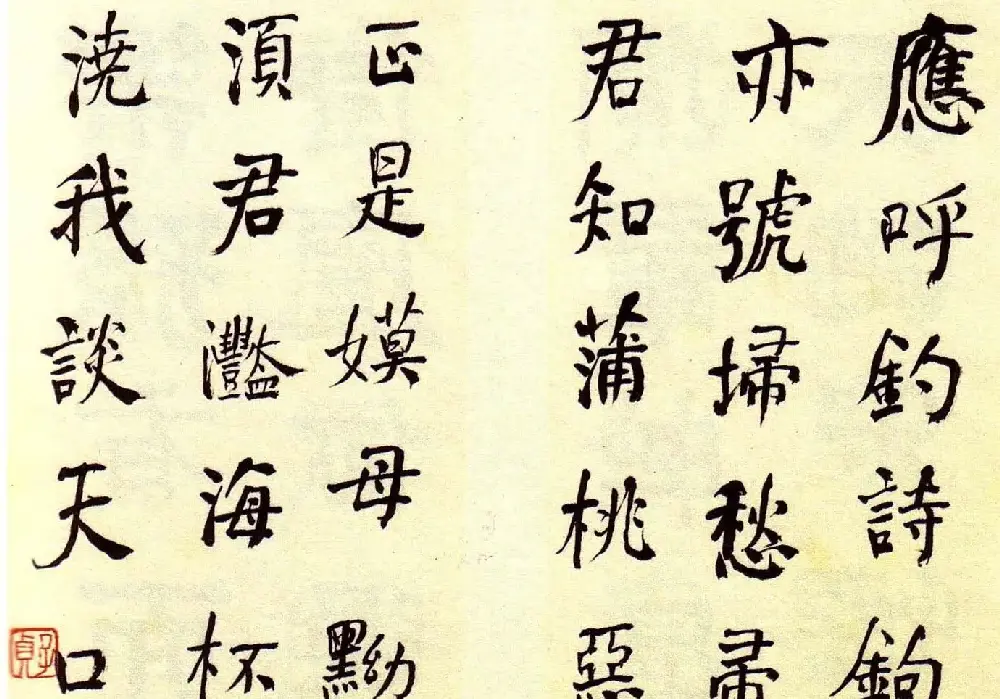 應呼釣詩鉤
亦號掃愁帚
君知蒲桃惡
正是嫫母黝
須君灩海杯
澆我談天口
子貞